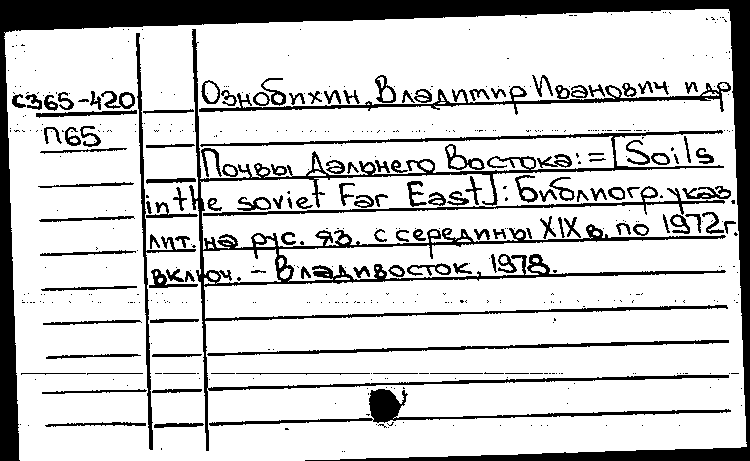 С365-420 Ознобихин, Владимир Иванович и др
П65
Почвы Дальнего Востока: = [Soils
in the soviet Far East]: Библиогр. указ.
лит. на рус. яз. с середины XIX в. по 1972 г.
включ. – Владивосток, 1978.